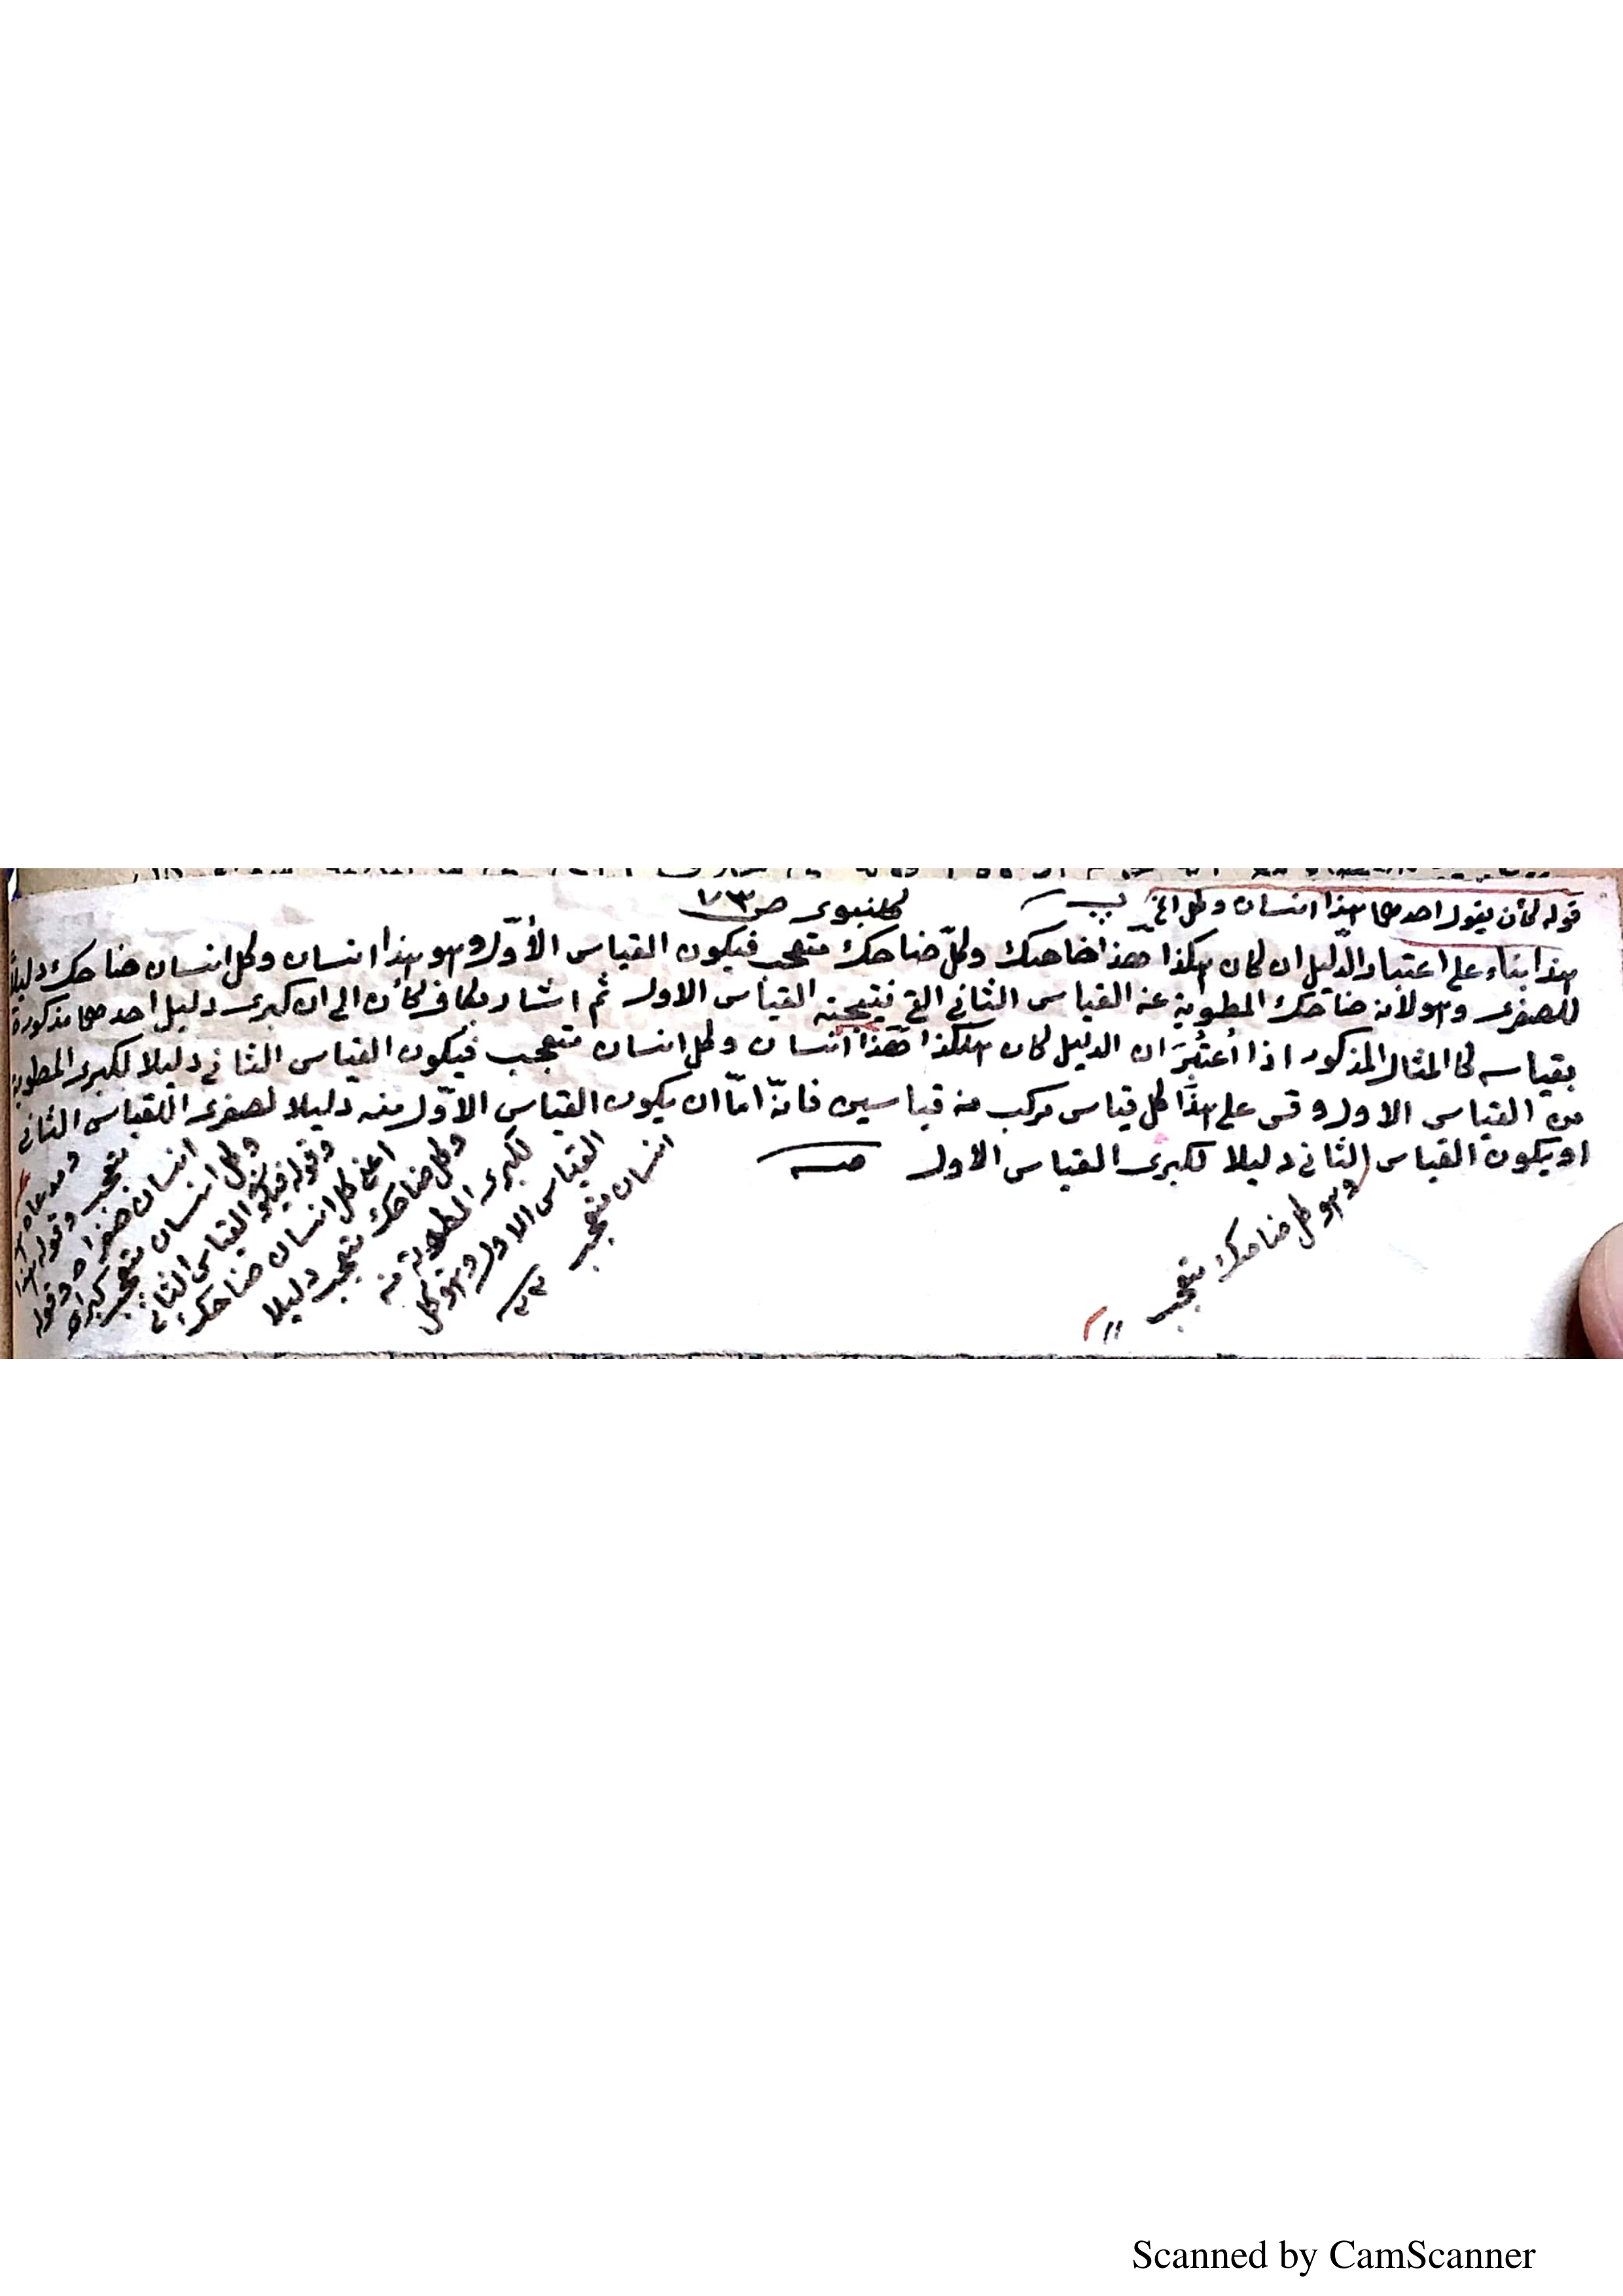 قوله كأن يقول احدهما هذا انسان وكل الخ
كلنبوى ص ٧٣
هذا بناء على اعتبار الدّليل ان كان هكذا هذا ضاحك وكلّ ضاحك متعجب فيكون القياس الأوّل وهو هذا انسان وكل انسان ضاحك دليلاً
للصغرى وهو لانه ضاحك المطوية عنه القياس الثانى التى نتيجته القياس الاول ثم اشار بكاف كأن الى ان كبرى دليل احدهما مذكورة
بقياسه كالمثال المذكور اذا اُعتُبِرَ ان الدليل كان هكذا هذا انسان وكل انسان متعجب فيكون القياس الثانى دليلا لكبرى المطوية
من القياس الاول وقس على هذا كل قياس مركب منه قياسين فانّه امّا ان يكون القياس الاوّل منه دليلا لصغرى القياس الثانى
او يكون القياس الثانى دليلا لكبرى القياس الاول منه
وهو كل ضاحك متعجب
متعجب وقوله هذا
انسان صغراه وقوله
وكل انسان متعجب كبراه
وقوله فيكون القياس الثانى
اعنى كل انسان ضاحك
وكل ضاحك متعجب دليلا
لكبرى المطوية منه
القياس الاول وهو كل
انسان متعجب
Scanned by CamScanner